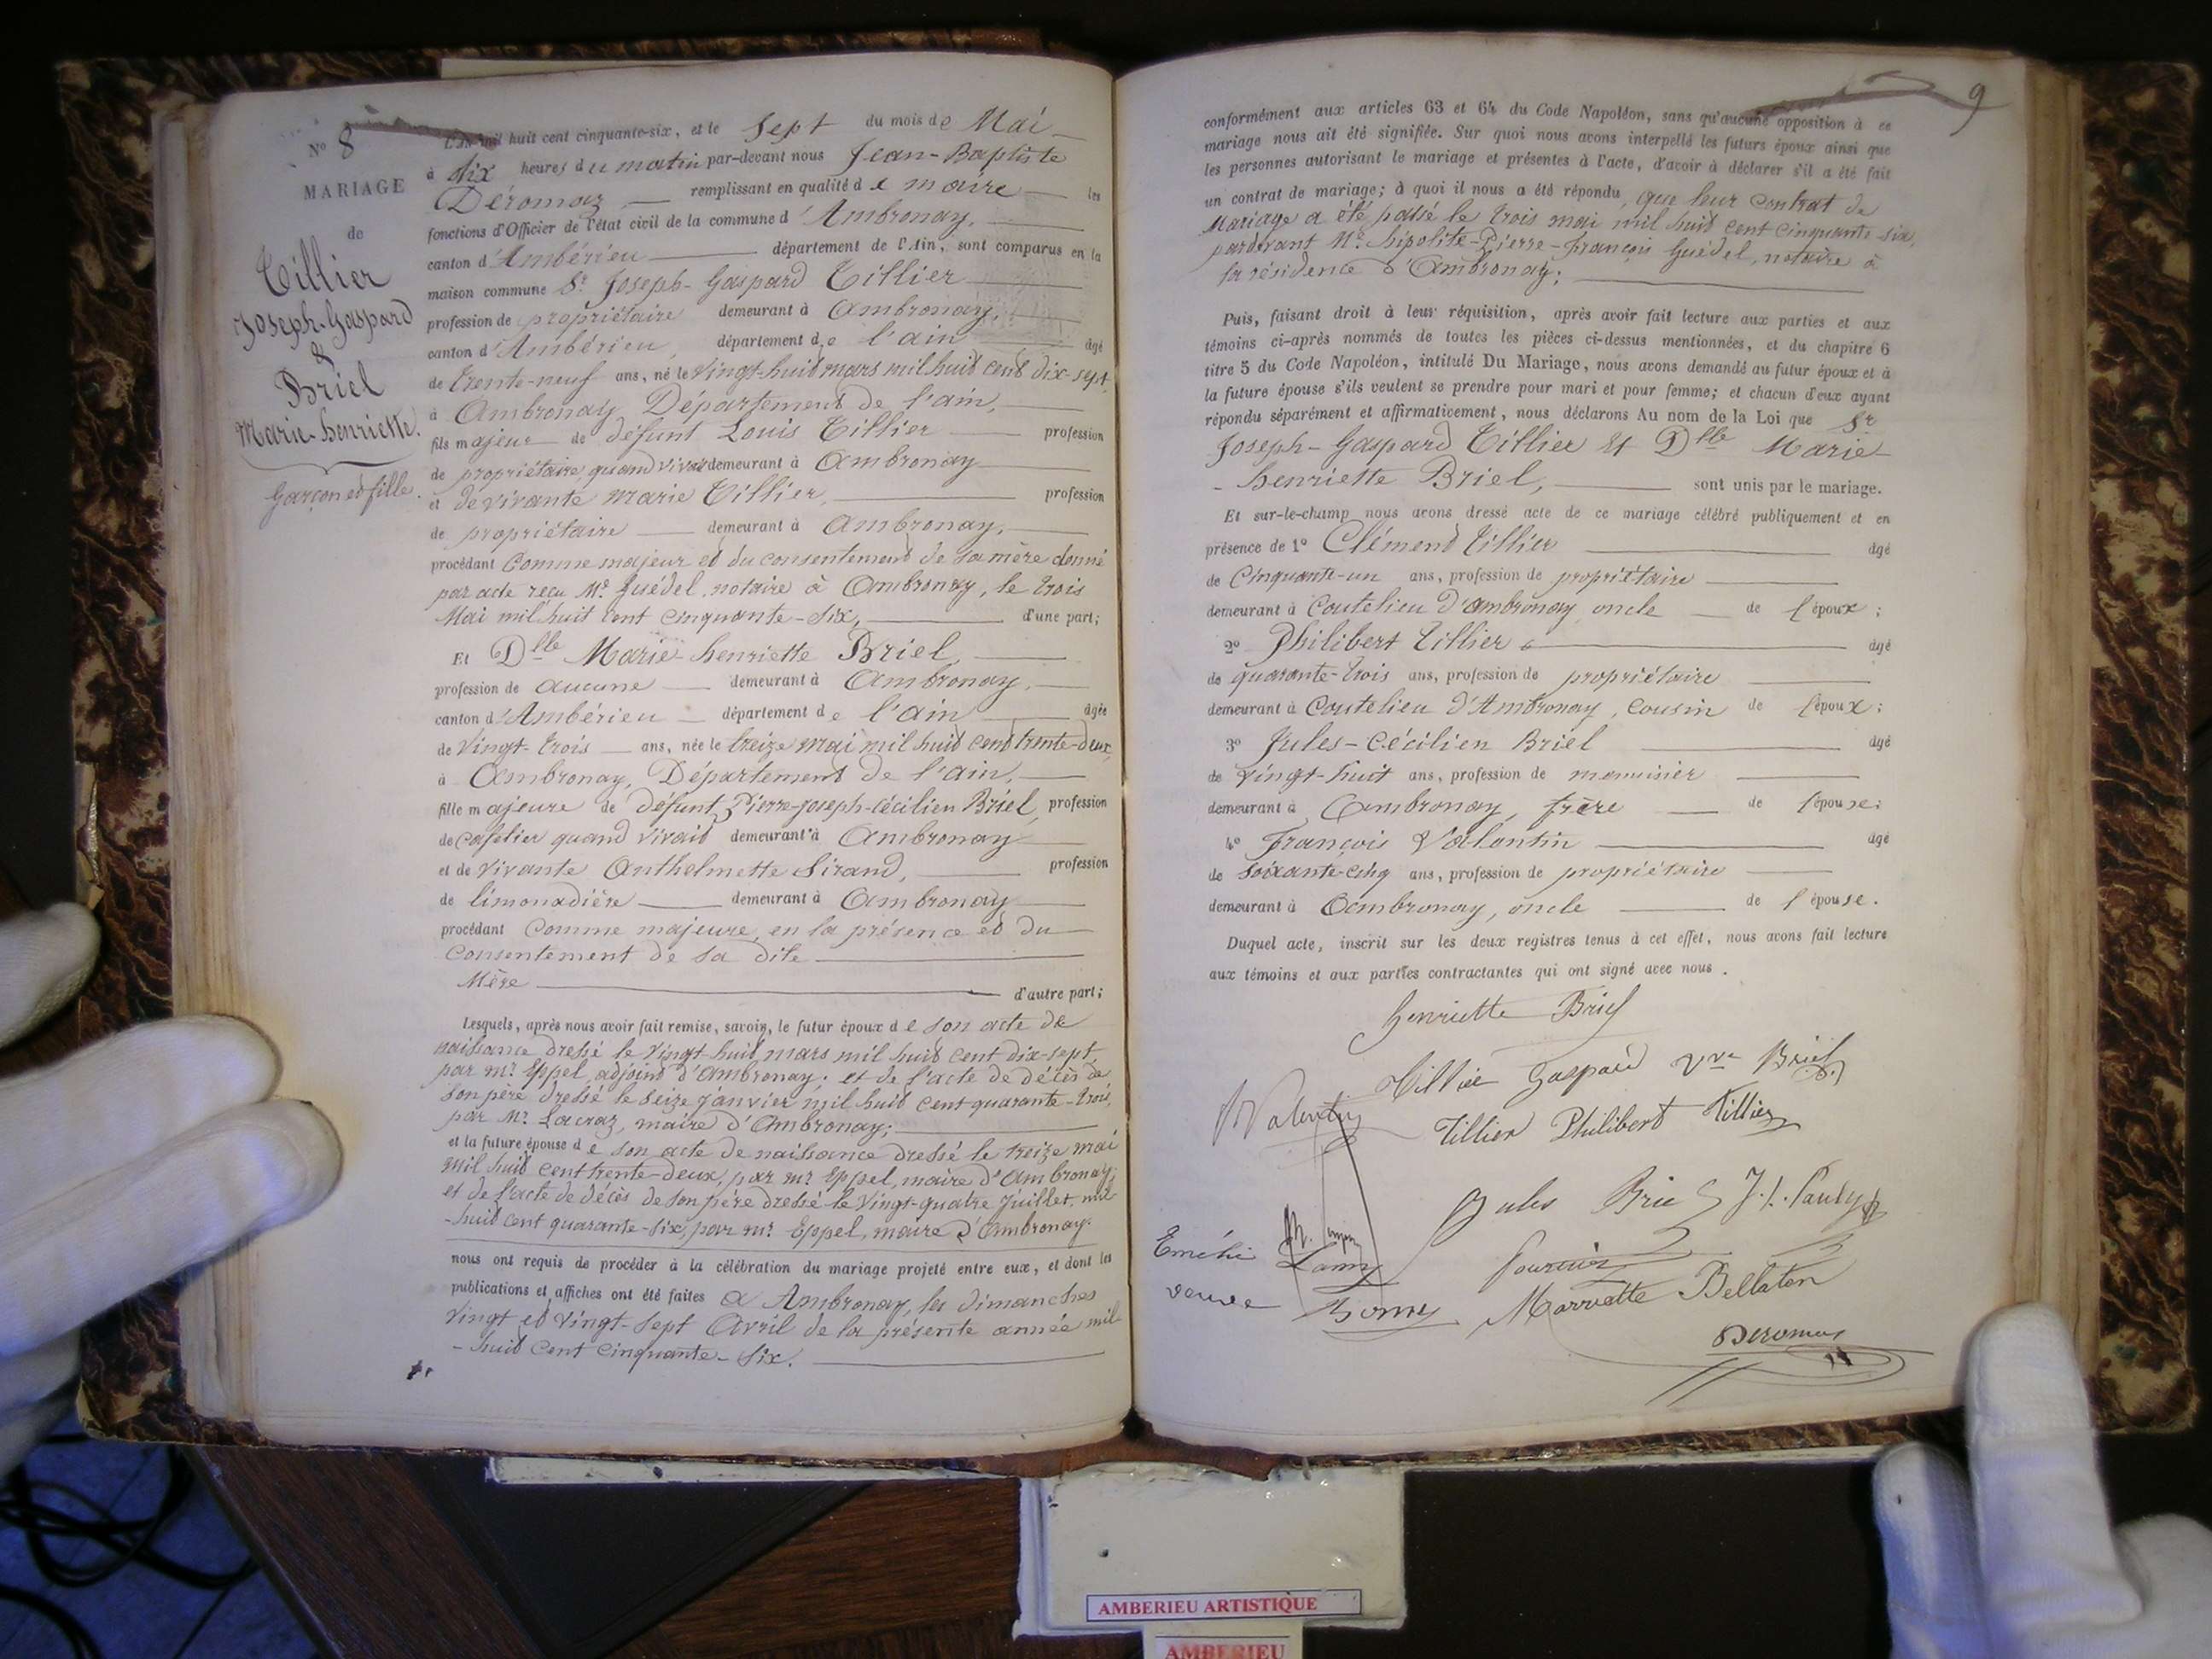 N° 8
MARIAGE
de
Tillier
Joseph-Gaspard
&
Briel
Marie-henriette.
Garçon et fille.
L'An mil huit cent cinquante-six, et le Sept du mois de Mai
à dix heures du matin par-devant nous Jean-Baptiste
Déromaz remplissant en qualité de maire les
fonctions d'Officier de l'état civil de la commune d'Ambronay,
canton d'Ambérieu département de l'Ain, sont comparus en la
maison commune Sr. Joseph-Gaspard Tillier
profession de propriétaire demeurant à Ambronay,
canton d'Ambérieu, département de l'ain âgé
de trente-neuf ans, né le vingt-huit mars mil huit cent dix-sept,
à Ambronay, Département de l'ain,
fils majeur de défunt Louis Tillier profession
de propriétaire, quand vivait demeurant à Ambronay
et de vivante marie Tillier, profession
de propriétaire demeurant à Ambronay,
procédant Comme majeur et du consentement de sa mère donné
par acte reçu Mr. Guédel, notaire à Ambronay, le trois
Mai mil huit cent cinquante-six, d'une part;
Et Dlle Marie-henriette Briel,
profession de aucune demeurant à Ambronay,
canton d'Ambérieu département de l'ain âgée
de vingt-trois ans, née le treize mai mil huit cent trente-deux,
à Ambronay, Département de l'ain,
fille majeure de défunt Pierre-Joseph-Cécilien Briel, profession
de cafetier quand vivait demeurant à Ambronay
et de vivante Anthelmette Sirand, profession
de limonadière demeurant à Ambronay
procédant Comme majeure, en la présence et du
Consentement de sa dite
Mère d'autre part;
Lesquels, après nous avoir fait remise, savoir, le futur époux de son acte de
naissance dressé le vingt-huit mars mil huit cent dix-sept,
par mr. Eppel, adjoint d'Ambronay; et de l'acte de décès de
son père dressé le seize janvier mil huit cent quarante-trois,
par Mr. Lacraz, maire d'Ambronay;
et la future épouse de son acte de naissance dressé le treize mai
mil huit cent trente-deux, par mr. Eppel, maire d'Ambronay;
et de l'acte de décès de son père dressé le vingt-quatre Juillet, mil
-huit cent quarante-six, par mr. Eppel, maire d'Ambronay.
nous ont requis de procéder à la célébration du mariage projeté entre eux, et dont les
publications et affiches ont été faites à Ambronay, les dimanches
vingt et vingt-sept Avril de la présente année mil-
-huit cent cinquante-six.
9
conformément aux articles 63 et 64 du Code Napoléon, sans qu'aucune opposition à ce
mariage nous ait été signifiée. Sur quoi nous avons interpellé les futurs époux ainsi que
les personnes autorisant le mariage et présentes à l'acte, d'avoir à déclarer s'il a été fait
un contrat de mariage; à quoi il nous a été répondu, que leur contrat de
Mariage a été passé le trois mai mil huit cent cinquante-six,
pardevant Mr. hipolite-Pierre-françois Guédel, notaire à
la résidence d'Ambronay;
Puis, faisant droit à leur réquisition, après avoir fait lecture aux parties et aux
témoins ci-après nommés de toutes les pièces ci-dessus mentionnées, et du chapitre 6
titre 5 du Code Napoléon, intitulé Du Mariage, nous avons demandé au futur époux et à
la future épouse s'ils veulent se prendre pour mari et pour femme; et chacun d'eux ayant
répondu séparément et affirmativement, nous déclarons Au nom de la Loi que Sr
Joseph-Gaspard Tillier et Dlle Marie-
-henriette Briel, sont unis par le mariage.
Et sur-le-champ nous avons dressé acte de ce mariage célébré publiquement et en
présence de 1° Clémend Tillier âgé
de Cinquante-un ans, profession de propriétaire
demeurant à Coutelieu d'ambronay, oncle de l'époux;
2° Philibert Tillier âgé
de quarante-trois ans, profession de propriétaire
demeurant à Coutelieu d'Ambronay, Cousin de l'époux;
3° Jules-Cécilien Briel âgé
de vingt-huit ans, profession de menuisier
demeurant à Ambronay, frère de l'épouse;
4° François Valantin âgé
de soixante-cinq ans, profession de propriétaire
demeurant à Ambronay, oncle de l'épouse.
Duquel acte, inscrit sur les deux registres tenus à cet effet, nous avons fait lecture
aux témoins et aux parties contractantes qui ont signé avec nous.
henriette Briel
Tillié Gaspard Vve Briel
Valentin Tillier Philibert Tillier
Jules Briel J. Pauly
Lamy Fournier
veuve Bonny Marriette Bellaton
Deromas
AMBERIEU ARTISTIQUE
AMBERIEU